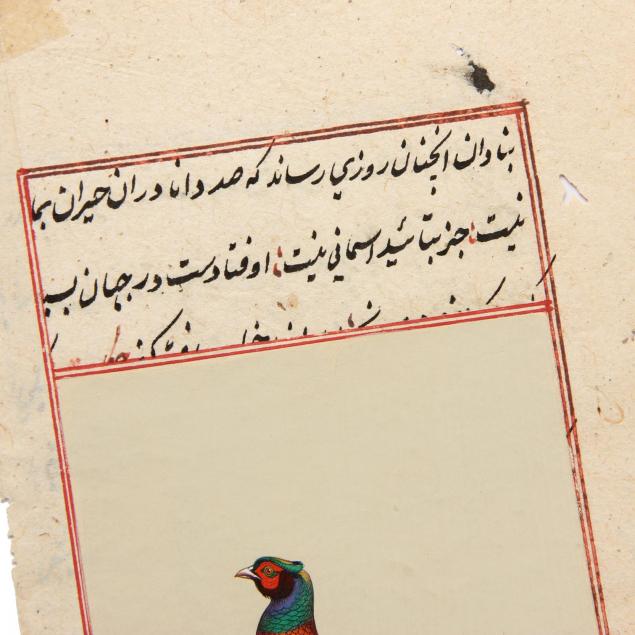 بنادان انچنان روزي رساند که صد دانا دران حیران بما
نیست جز بتائید اسمانی نیست اوفتادست در جهان بسی